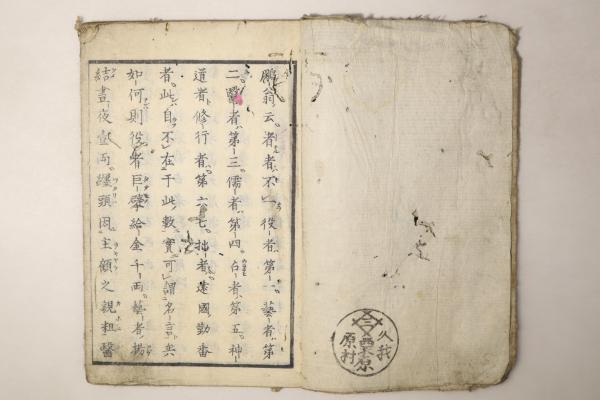 鵬翁云。者者不一。役者第一。藝者第
二。醫者第三。儒者第四。台者第五。神
道者修行者。第六七。拙者。遠國勤番
者。此自不在于此數。實可謂名言矣
如何則役者巨擘給金千両。藝者揚
結晝夜壹両。纏頭因主顧之親粗醫
久我
原村